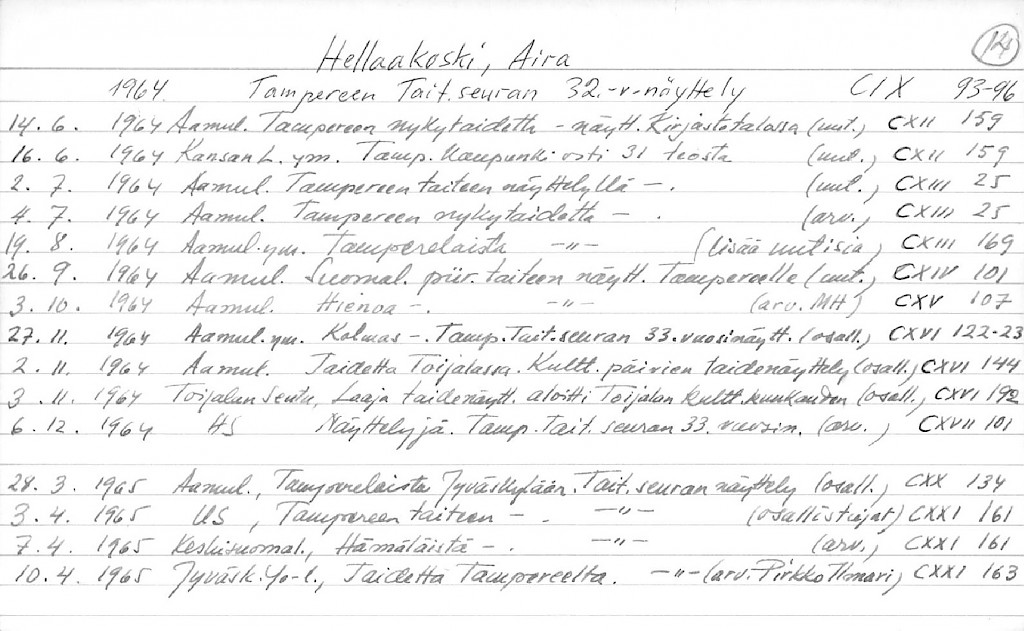 14
Hellaakoski, Aira
1964. Tampereen Tait.seuran 32.-v-näyttely CIX 93-96
14. 6. 1964 Aamul. Tampereen nykytaidetta - näytt. Kirjastotalossa (uut.) CXII 159
16. 6. 1964 Kansan L. ym. Tamp. kaupunki osti 31 teosta (uut.) CXII 159
2. 7. 1964 Aamul. Tampereen taiteen näyttelyllä -. (uut.) CXIII 25
4. 7. 1964 Aamul. Tampereen nykytaidetta - . (arv.) CXIII 25
19. 8. 1964 Aamul.ym. Tamperelaista -"- (lisää uutisia) CXIII 169
26. 9. 1964 Aamul. Suomal. piir.taiteen näytt. Tampereelle (uut.) CXIV 101
3. 10. 1964 Aamul. Hienoa -. -"- (arv. MH) CXV 107
27. 11. 1964 Aamul.ym. Kolmas -. Tamp.Tait.seuran 33.vuosinäytt. (osall.) CXVI 122-23
2. 11. 1964 Aamul. Taidetta Toijalassa. Kultt. päivien taidenäyttely (osall.) CXVI 144
3. 11. 1964 Toijalan Seutu, Laaja taidenäytt. aloitti Toijalan kultt.kuukauden (osall.) CXVI 192
6. 12. 1964 HS Näyttelyjä. Tamp. Tait. seuran 33. vuosin. (arv.) CXVII 101
28. 3. 1965 Aamul., Tamperelaista Jyväskylään. Tait. seuran näyttely (osall.) CXX 134
3. 4. 1965 US, Tampereen taiteen - . -"- (osallistujat) CXXI 161
7. 4. 1965 Keskisuomal., Hämäläistä - . -"- (arv.) CXXI 161
10. 4. 1965 Jyväsk. Yo-l., Taidetta Tampereelta. -"- (arv. Pirkko) CXXI 163